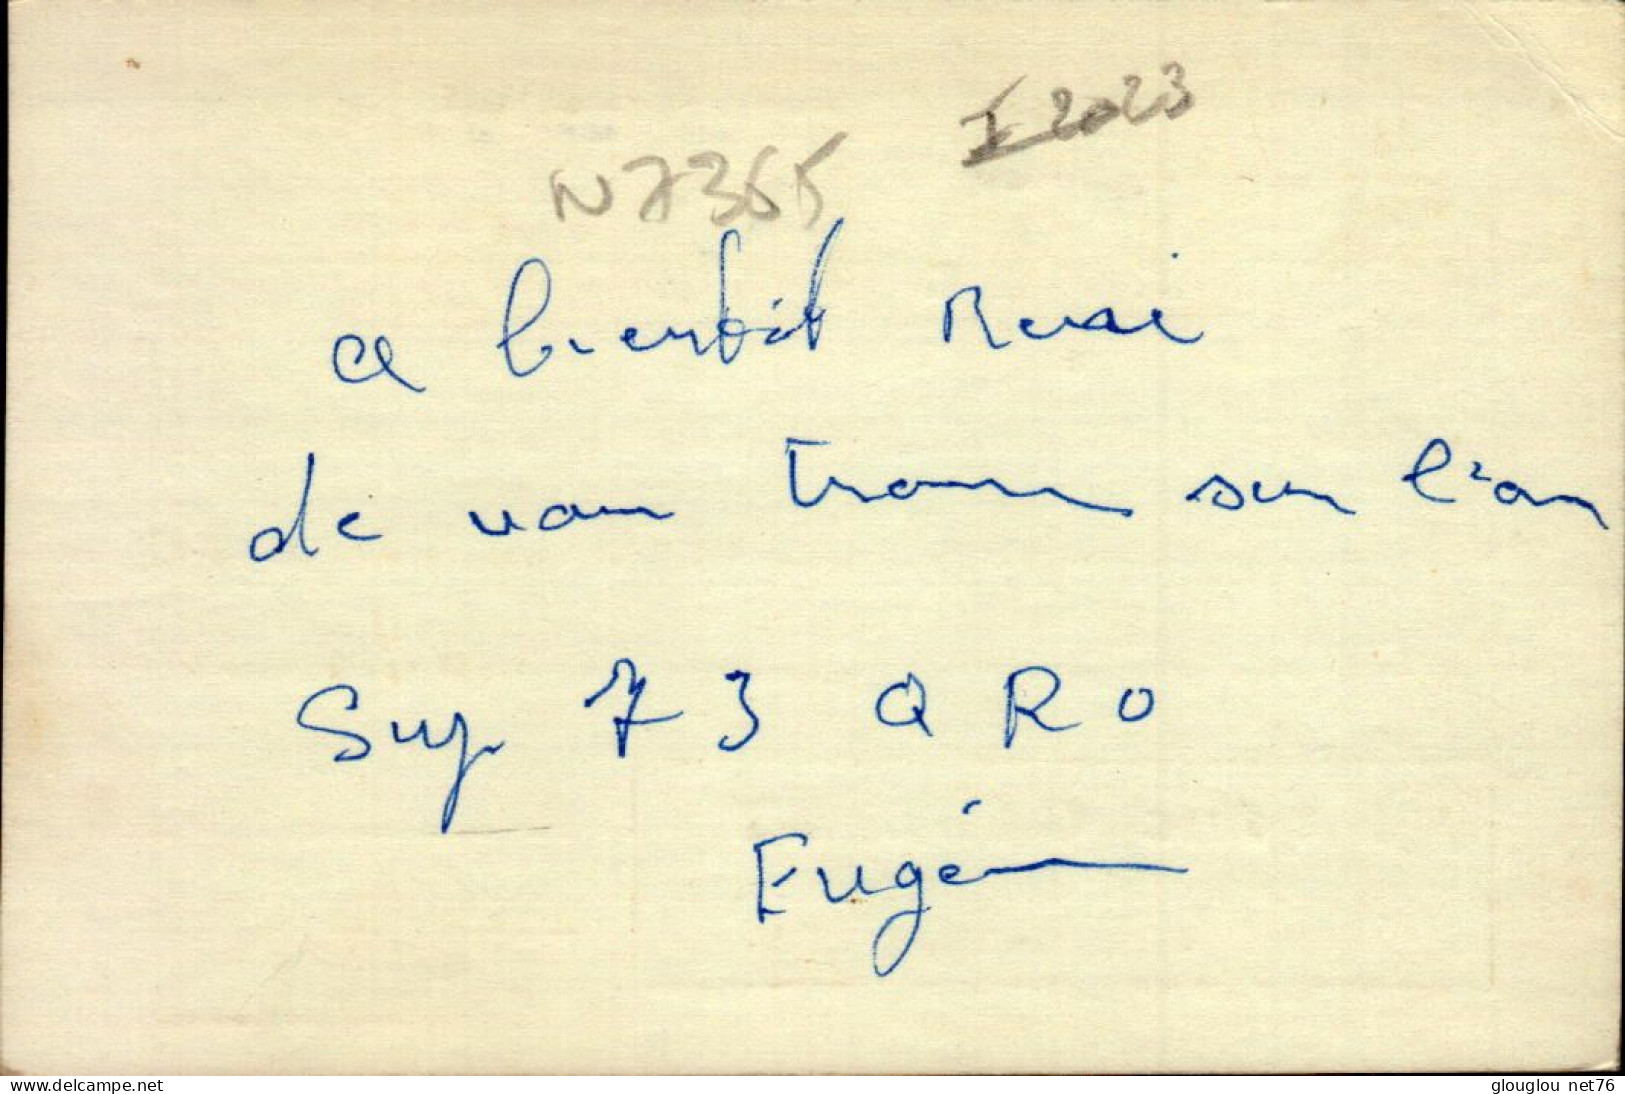 I 2023
N7365
a bientôt René
de vous trouver sur l'air
Sup 73 QRO
Eugène
www.delcampe.net
glouglou net76